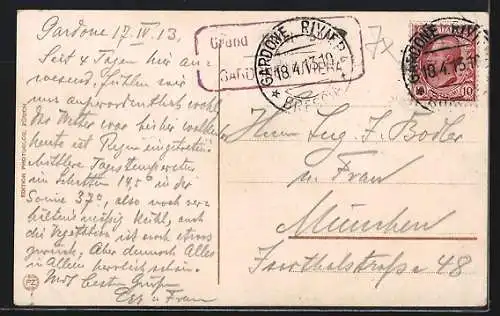 Gardone 17.IV.13.
Seit 4 Tagen hier an-
wesend, fühlen wir
uns außerordentlich wohl.
Das Wetter war bisher wolken
heute ist Regen eingetreten.
mittlere Tagestemperatur
im Schatten 14,5° in der
Sonne 37°, also noch ver-
hältnis mäßig kühl, auch
die Vegetation ist noch etwas
zurück. Aber dennoch Alles
in Allem herrlich schön.
Mit besten Grüßen
u Frau
EDITION PHOTOGLOB, ZÜRICH
PZ
Grand
GARDONE RIVIERA
18.4.13.10
BRESCIA
GARDONE RIVIERA
18.4.13.10
10
7x
Herrn Ing. J. Bodler
u. Frau
München
Isarthalstraße 48